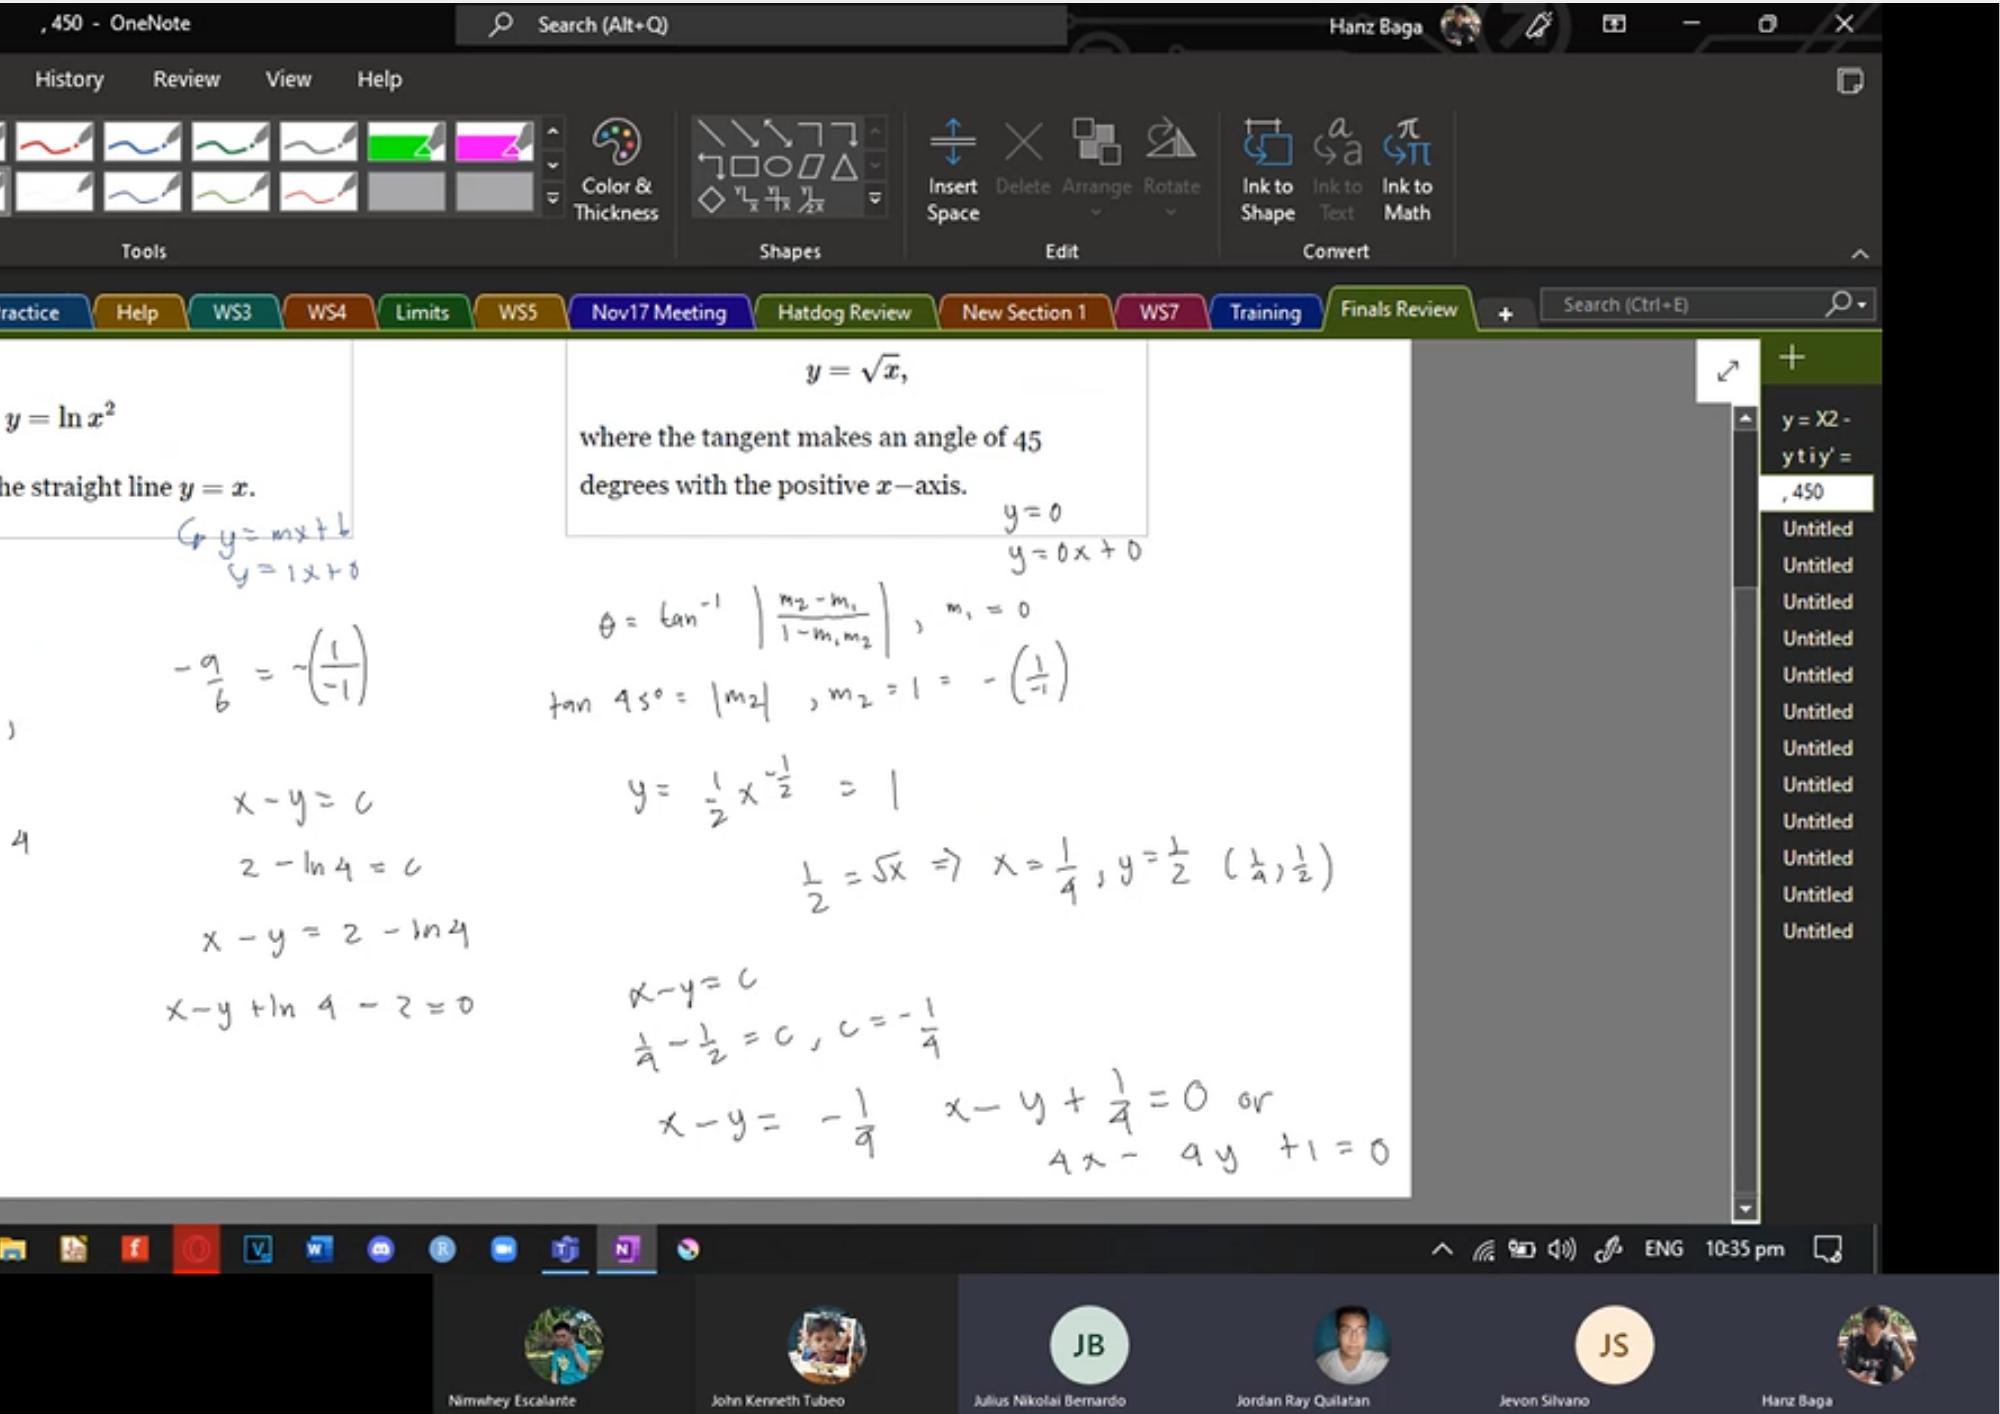 , 450 - OneNote
Search (Alt+Q)
Hanz Baga
History Review View Help
Color & Thickness
Insert Space
Delete
Arrange
Rotate
Ink to Shape
Ink to Text
Ink to Math
Tools
Shapes
Edit
Convert
ractice
Help
WS3
WS4
Limits
WS5
Nov17 Meeting
Hatdog Review
New Section 1
WS7
Training
Finals Review
+
Search (Ctrl+E)
y = ln x²
he straight line y = x.
y = mx + b
y = 1x + 0
-a/b = -(1/-1)
x - y = c
2 - ln 4 = c
x - y = 2 - ln 4
x - y + ln 4 - 2 = 0
)
4
y = √x,
where the tangent makes an angle of 45
degrees with the positive x-axis.
y = 0
y = 0x + 0
θ = tan⁻¹ |(m₂ - m₁)/(1 - m₁m₂)|, m₁ = 0
tan 45° = |m₂|, m₂ = 1 = -(1/-1)
y = 1/2 x^(-1/2) = 1
1/2 = √x ⇒ x = 1/4, y = 1/2 (1/4, 1/2)
x - y = c
1/4 - 1/2 = c, c = -1/4
x - y = -1/4 x - y + 1/4 = 0 or
4x - 4y + 1 = 0
+
y = X2 -
y t i y' =
, 450
Untitled
Untitled
Untitled
Untitled
Untitled
Untitled
Untitled
Untitled
Untitled
Untitled
Untitled
Untitled
ENG 10:35 pm
Nimwhey Escalante
John Kenneth Tubeo
JB
Julius Nikolai Bernardo
Jordan Ray Quilatan
JS
Jevon Silvano
Hanz Baga